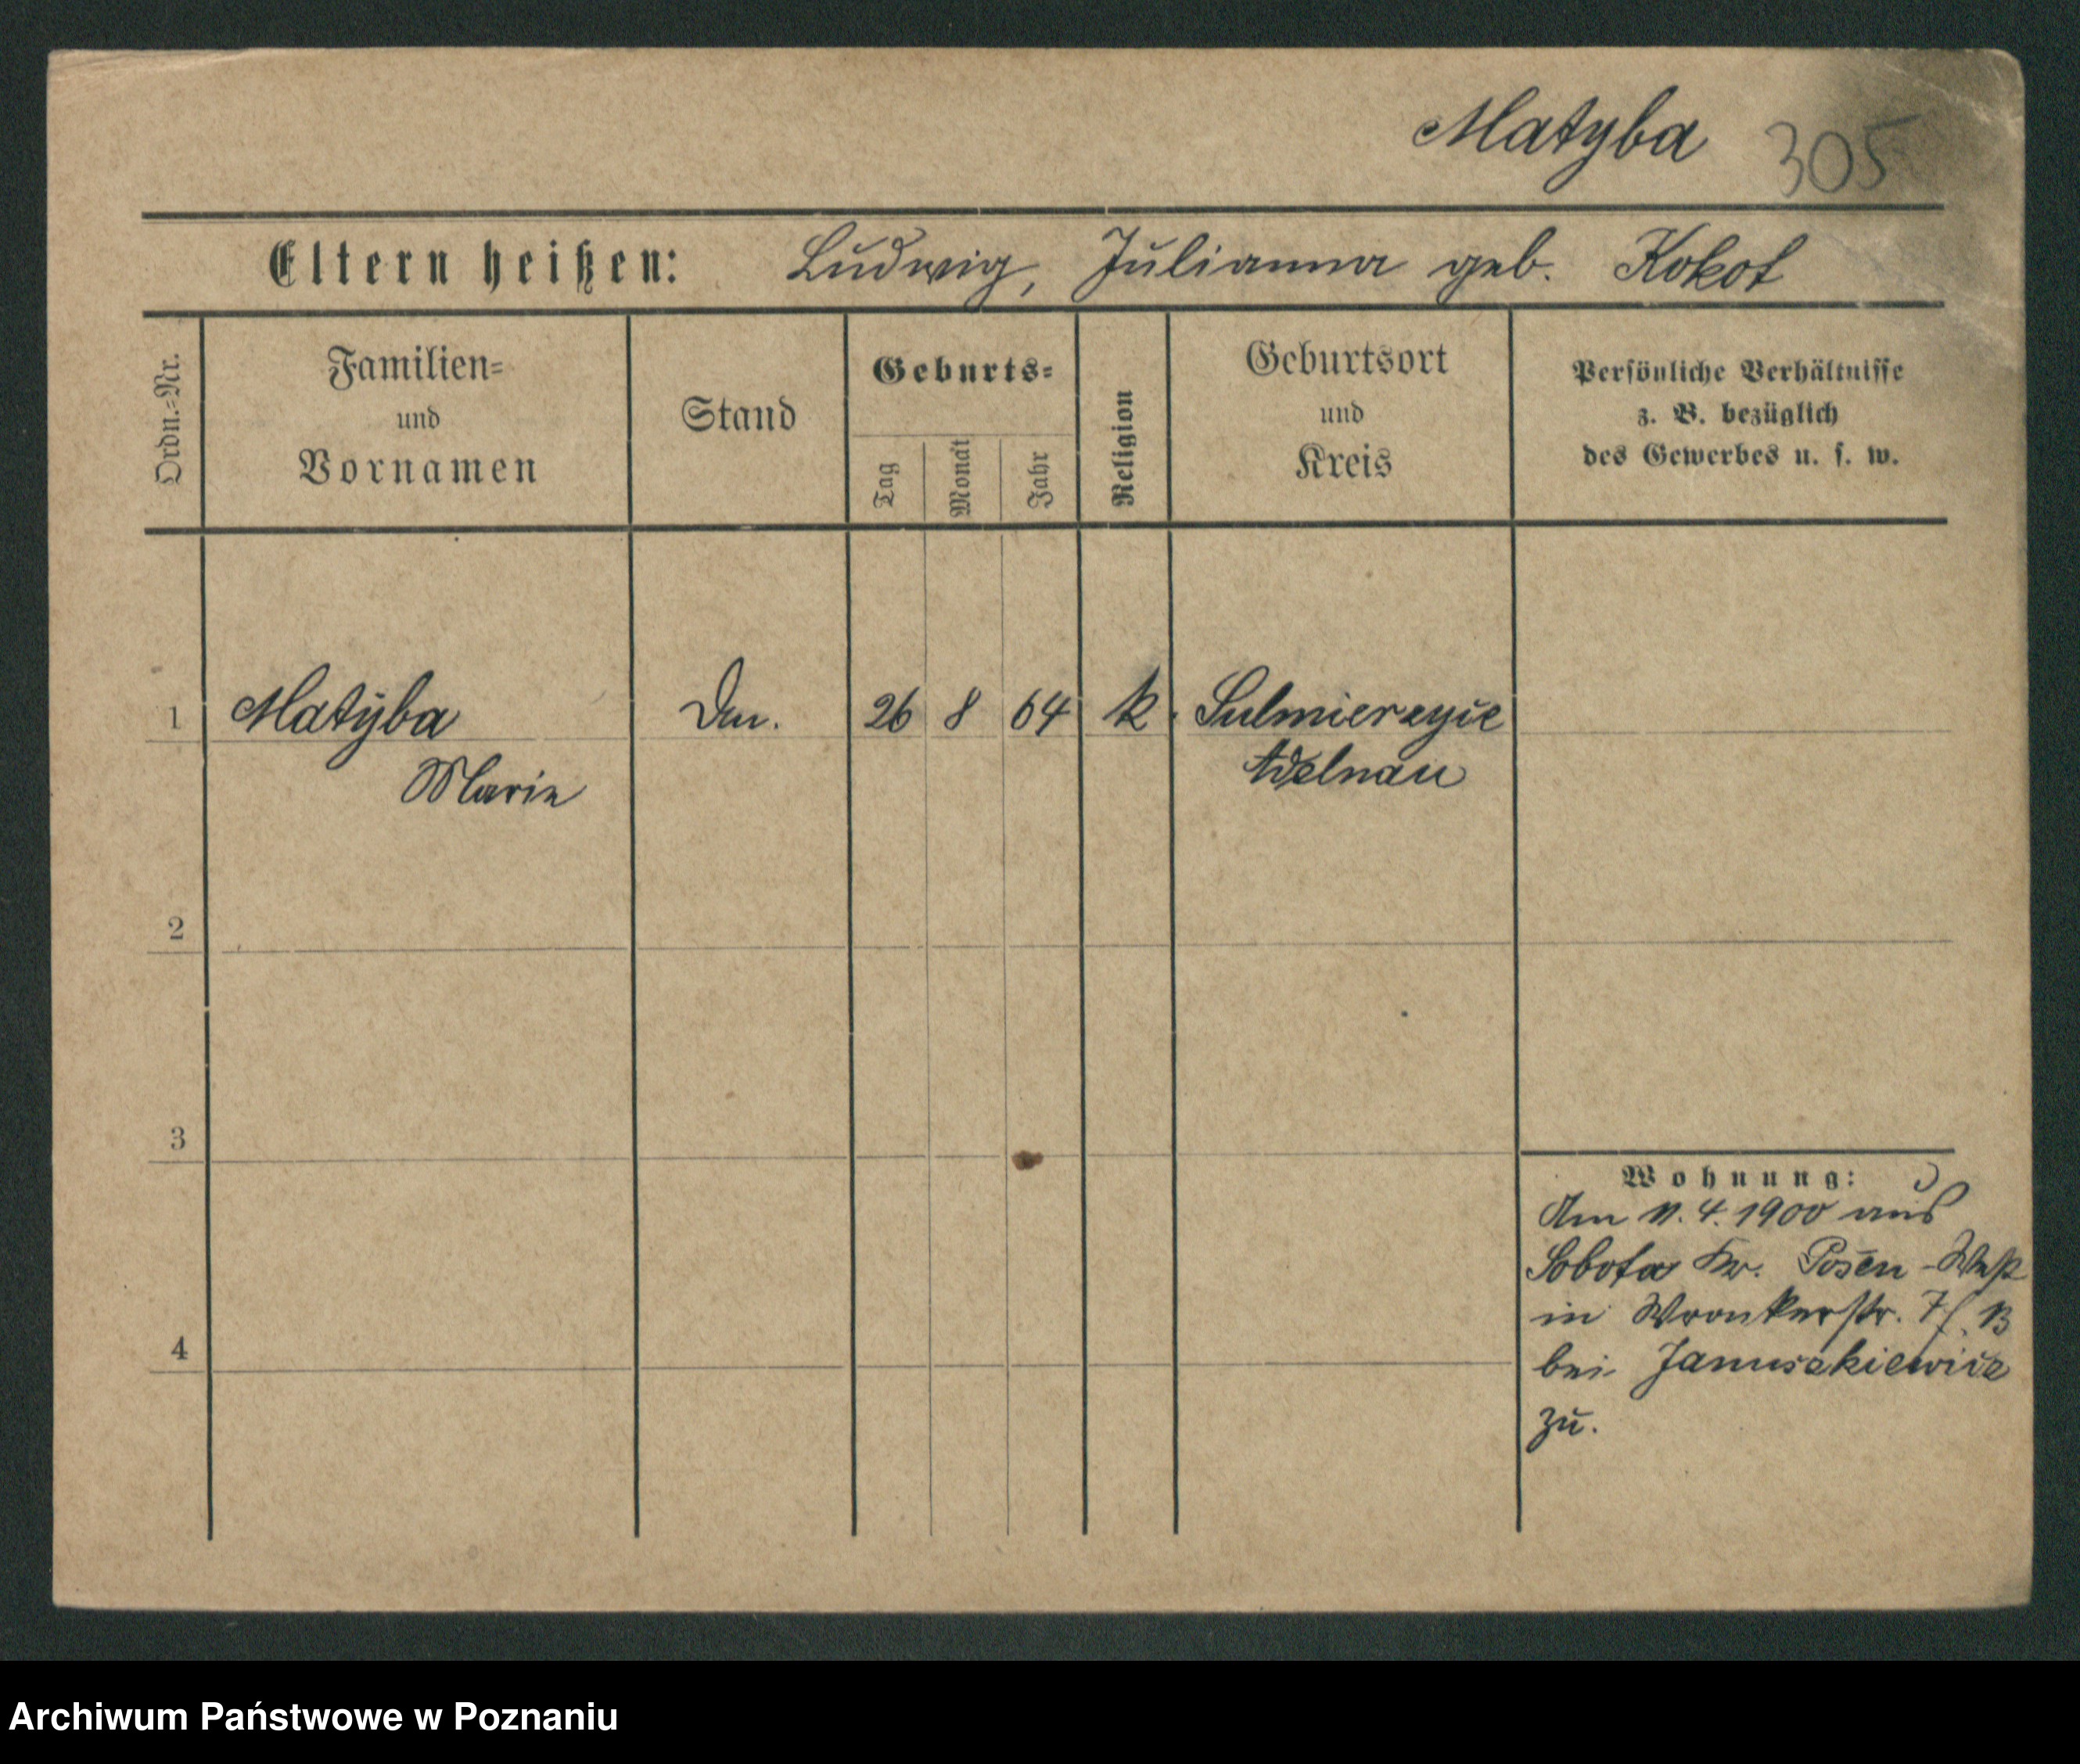 Matyba 305
Eltern heißen: Ludwig, Julianna geb. Kokot
Ordn.-Nr.
Familien-
und
Vornamen
Stand
Geburts-
Tag
Monat
Jahr
Religion
Geburtsort
und
Kreis
Persönliche Verhältnisse
z. B. bezüglich
des Gewerbes u. s. w.
1 Matyba 26 8 64 k. Sulmierzyce
Marie Adelnau
2
3
4
Wohnung:
Am 11. 4. 1900 aus
Sobota Kr. Posen-West
in Wronkerstr. 7/
bei Januszkiewicz
zu.
Archiwum Państwowe w Poznaniu